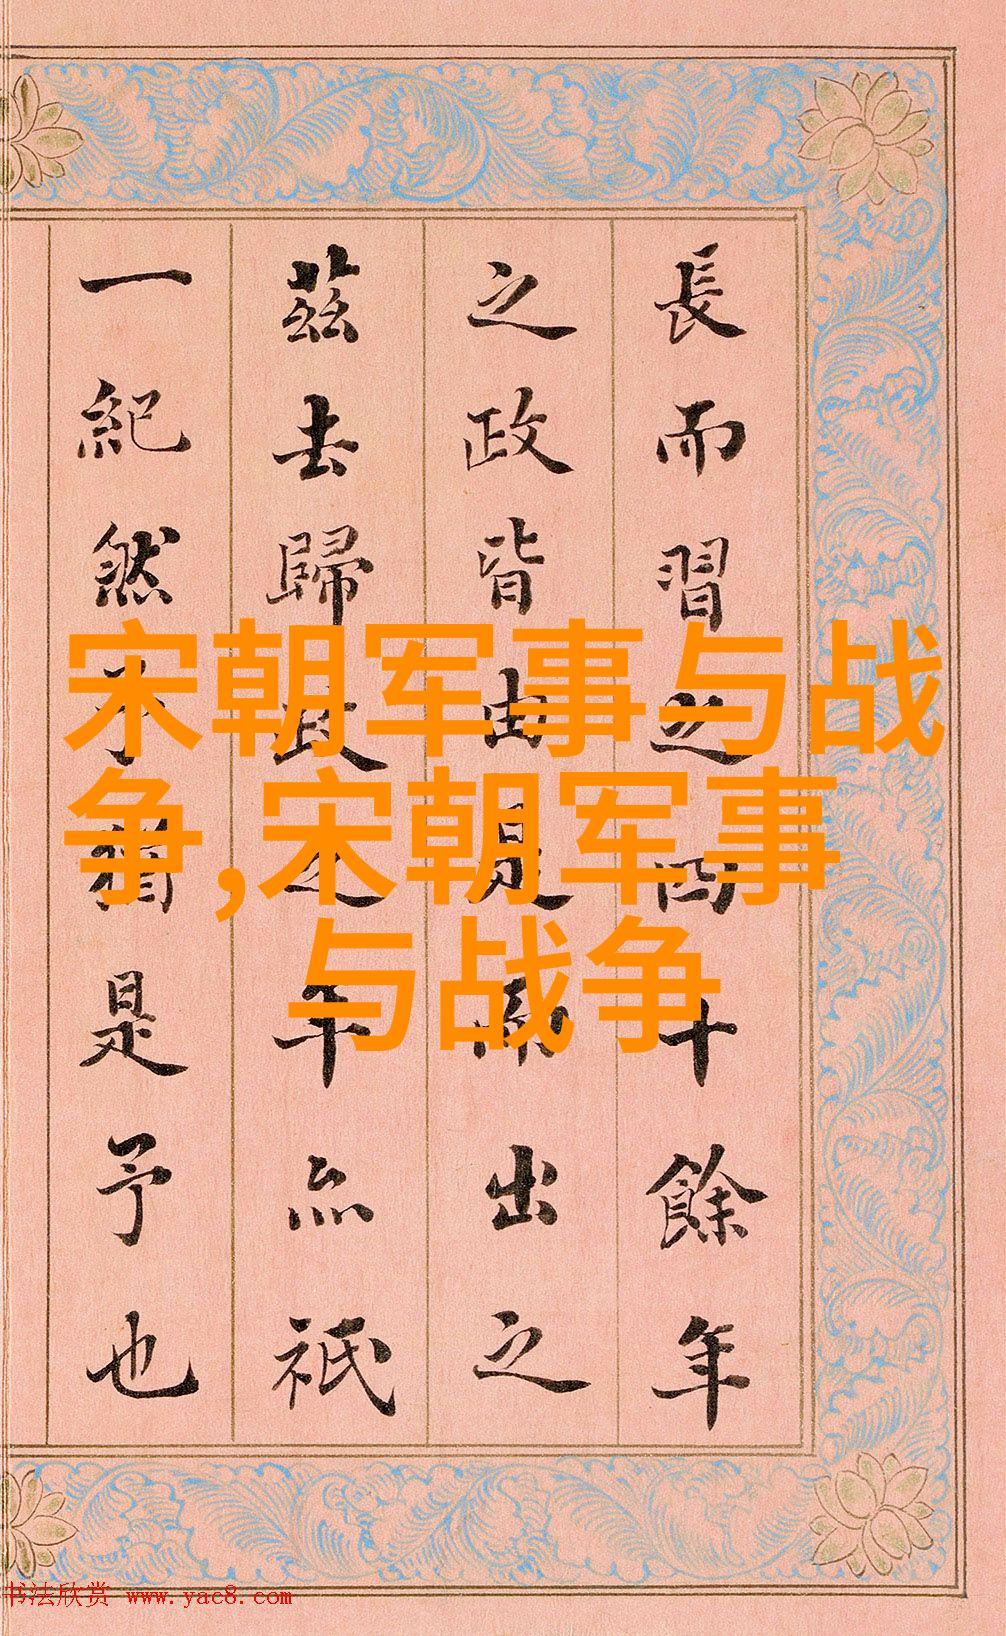 長而習之四十餘年
之政皆由是而出之
茲去歸政之年亦祇
一紀然予猶是予也
宋朝军事与战
争,宋朝军事
与战争
书法欣赏 www.yac8.com